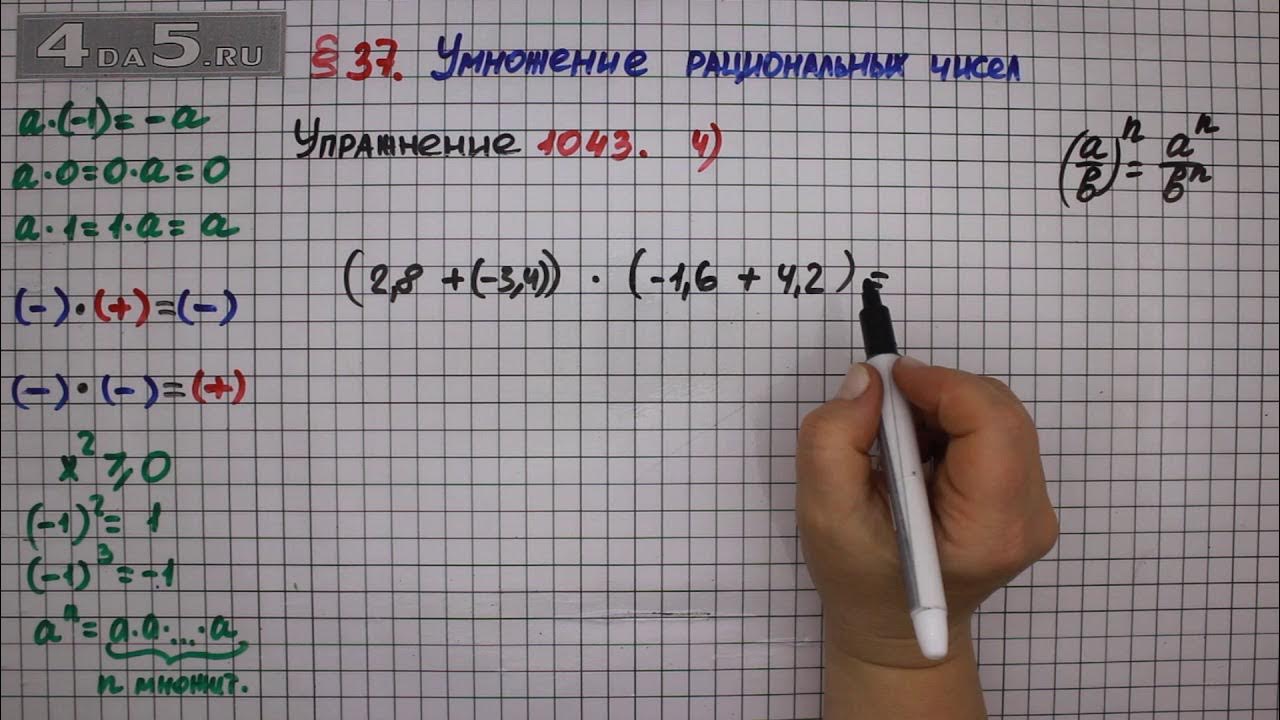 4DA5.RU
§ 37. Умножение рациональных чисел
Упражнение 1043. 4)
a·(-1)=-a
a·0=0·a=0
a·1=1·a=a
(-)·(+)=(-)
(-)·(-)=(+)
x²⩾0
(-1)²=1
(-1)³=-1
aⁿ=a·a·...·a,
n множит.
(a/b)ⁿ=aⁿ/bⁿ
(2,8 +(-3,4)) · (-1,6 + 4,2)=